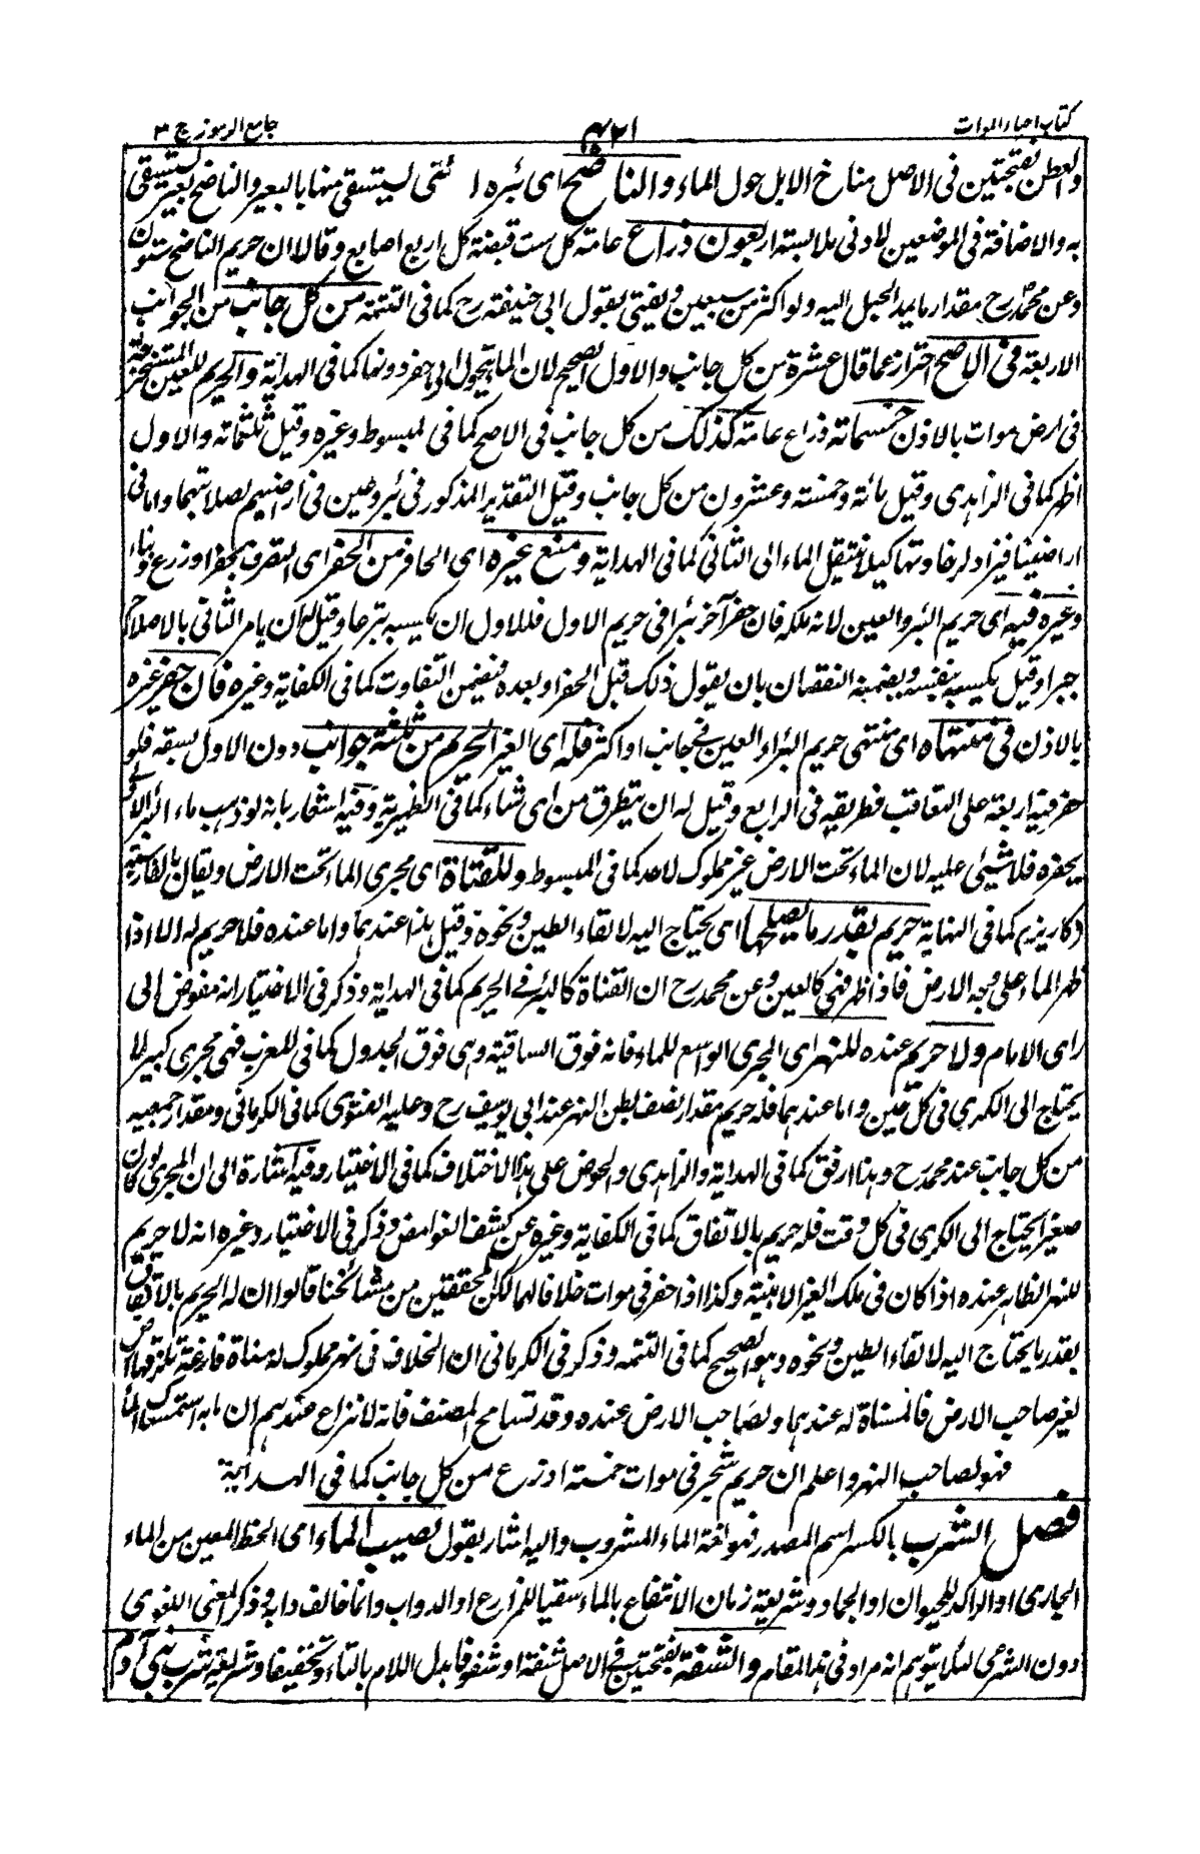 كتاب احياء الموات
٤٢١
جامع الرموز ج ٣
والعطن بفتحتين فى الاصل مناخ الابل حول الماء والناضح اى بئره التى ليستسقى منها بالبعير والناضح بعير يستسقى
به والاضافة فى الموضعين لادنى ملابسة اربعون ذراع عامة كل ست قبضة كل اربع اصابع وقالا ان حريم الناضح ستون
وعن محمد رح مقدار ما يمد الحبل اليه ولو اكثر من سبعين ويفتى بقول ابى حنيفة رح كما فى التتمة من كل جانب من الجوانب
الاربعة فى الاصح احتراز عما قال عشرة من كل جانب والاول الصحيح لان الماء يتحول الى ما حفر دونها كما فى الهداية والحريم للعين المستخرجة
فى ارض موات بالاذن خمسمائة ذراع عامة كذلك من كل جانب فى الاصح كما فى المبسوط وغيره وقيل ثلثمائة والاول
اظهر كما فى الزاهدى وقيل مائة وخمسة وعشرون من كل جانب وقيل التقدير المذكور فى بئر وعين فى اراضيهم لصلابتهما واما فى
اراضينا فيزاد لرخاوتها كيلا ينتقل الماء الى الثانى كما فى الهداية ومنع غيره اى الحافر من الحفر اى التصرف بحفر او زرع او بناء
وغيره فيه اى حريم البئر والعين لانه ملكه فان حفر آخر بئرا فى حريم الاول فللاول ان يكبسه تبرعا وقيل له ان يامر الثانى بالاصلاح
جبرا وقيل يكبسه بنفسه ويضمنه النقصان بان يقول ذلك قبل الحفر او بعده فيضمن التفاوت كما فى الكفاية وغيره فان حفر غيره
بالاذن فى منتهاه اى منتهى حريم البئر او العين فى جانب او اكثر فله اى الغير الحريم من ثلثة جوانب دون الاول لسبقه فلو
حفر فيه اربعة على التعاقب فطريقه فى الرابع وقيل له ان يتطرق من اى شاء كما فى الظهيرية وفيه اشعار بانه لو ذهب ماء البئر الاولى
بحفره فلا شيئ عليه لان الماء تحت الارض غير مملوك لاحد كما فى المبسوط وللقناة اى مجرى الماء تحت الارض ويقال بالفارسية
(كاريز) كما فى النهاية حريم بقدر ما يصلحها اى يحتاج اليه لالقاء الطين ونحوه وقيل هذا عندهما واما عنده فلا حريم له الا اذا
ظهر الماء على وجه الارض فاذا ظهر فهى كالعين وعن محمد رح ان القناة كالبئر فى الحريم كما فى الهداية وذكر فى الاختيار انه مفوض الى
راى الامام ولا حريم عنده للنهر اى المجرى الواسع للماء فانه فوق الساقية وهى فوق الجدول كما فى المغرب فهى مجرى كبير لا
يحتاج الى الكرى فى كل حين واما عندهما فله حريم مقدار نصف بطن النهر عند ابى يوسف رح وعليه الفتوى كما فى الكرمانى ومقدار جميعه
من كل جانب عند محمد رح وهذا ارفق كما فى الهداية والزاهدى والحوض على هذا الاختلاف كما فى الاختيار وفيه اشارة الى ان المجرى لو كان
صغيرا يحتاج الى الكرى فى كل وقت فله حريم بالاتفاق كما فى الكفاية وغيره عن كشف الغوامض وذكر فى الاختيار وغيره انه لا حريم
للنهر الظاهر عنده اذا كان فى ملك الغير الا ببينة وكذا اذا حفر فى موات خلافا لهما لكن المحققين من مشائخنا قالوا ان له الحريم بالاتفاق
بقدر ما يحتاج اليه لالقاء الطين ونحوه وهو الصحيح كما فى التتمة وذكر فى الكرمانى ان الخلاف فى نهر مملوك له مسناة فارغة بلزقها ارض
لغير صاحب الارض فالمسناة له عندهما ولصاحب الارض عنده وقد تسامح المصنف فانه لا نزاع عندهم ان ما به استمساك الماء
فهو لصاحب النهر واعلم ان حريم شجر فى موات خمسة اذرع من كل جانب كما فى الهداية
فصل الشرب بالكسر اسم المصدر فهو لغة الماء المشروب واليه اشار بقول نصيب الماء اى الحظ المعين من الماء
الجارى او الراكد للحيوان او الجماد وشريعة زمان الانتفاع بالماء سقيا للمزارع او الدواب وانما خالف دابه فى ذكر المعنى اللغوى
دون الشرعى لئلا يتوهم انه مراد فى هذا المقام والشفة بفتحتين فى الاصل شفهة او شفو فابدل اللام بالتاء تخفيفا وشريعة شرب بنى آدم